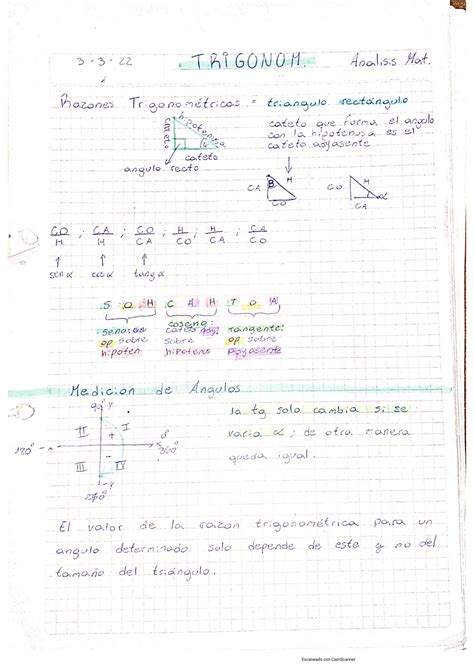 3-3-22 TRIGONOM. Analisis Mat.
Razones Trigonométricas = triangulo rectángulo
cateto
hipotenusa
cateto
angulo recto
cateto que forma el angulo
con la hipotenusa es el
cateto adyasente
B H
CA
CO
CO H
CA α
CO/H ; CA/H ; CO/CA ; H/CO ; H/CA ; CA/CO
sen α cos α tang α
S O H C A H T O A
seno: coseno: tangente:
op sobre sobre op sobre
hipoten hipotens adyasente
Medicion de Angulos
90° y
II I
+
180° -x 0°
x 360°
-
III IV
-y
270°
la tg solo cambia si se
varia α ; de otra manera
queda igual.
El valor de la razon trigonométrica para un
angulo determinado solo depende de este y no del
tamaño del triángulo.
Escaneado con CamScanner